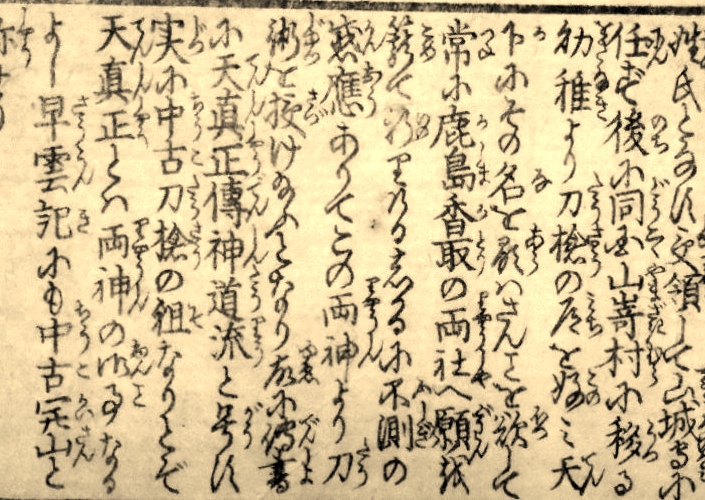 姓氏となす又領して山城守に
任ず後に同国山嵜村に移る
幼稚より刀槍の道を好み天
下にその名を顕はさんことを欲して
常に鹿島香取の両社へ願を
籠て祈りけるしかるに不測の
感應ありてこの両神より刀
術を授け給ふとなり故に傳書
に天真正傳神道流と号す
実に中古刀槍の祖なりとぞ
天真正とは両神の御事なる
よし早雲記にも中古開山と